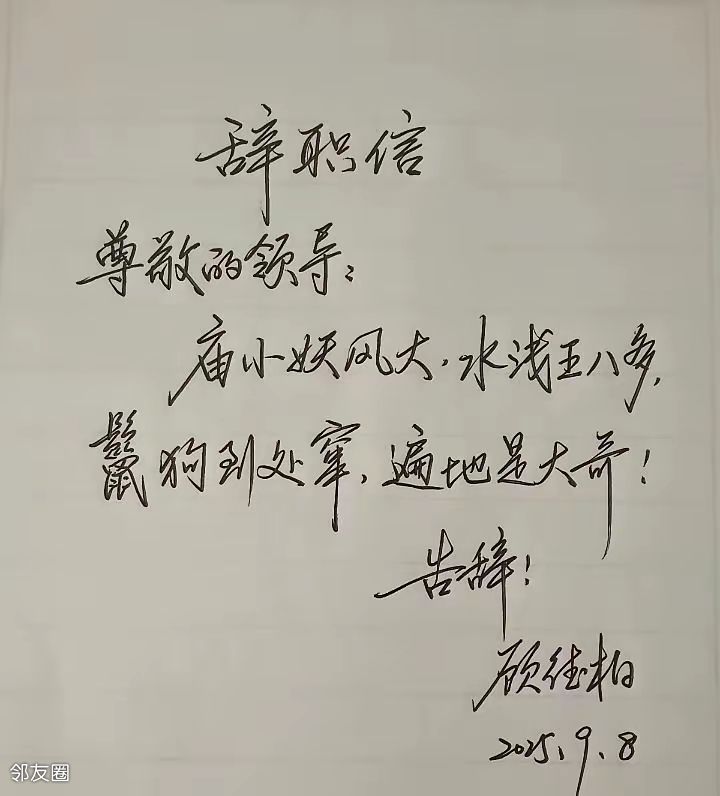 辞职信
尊敬的领导：
庙小妖风大，水浅王八多，
鬣狗到处窜，遍地是大哥！
告辞！
顾德柏
2025.9.8
邻友圈